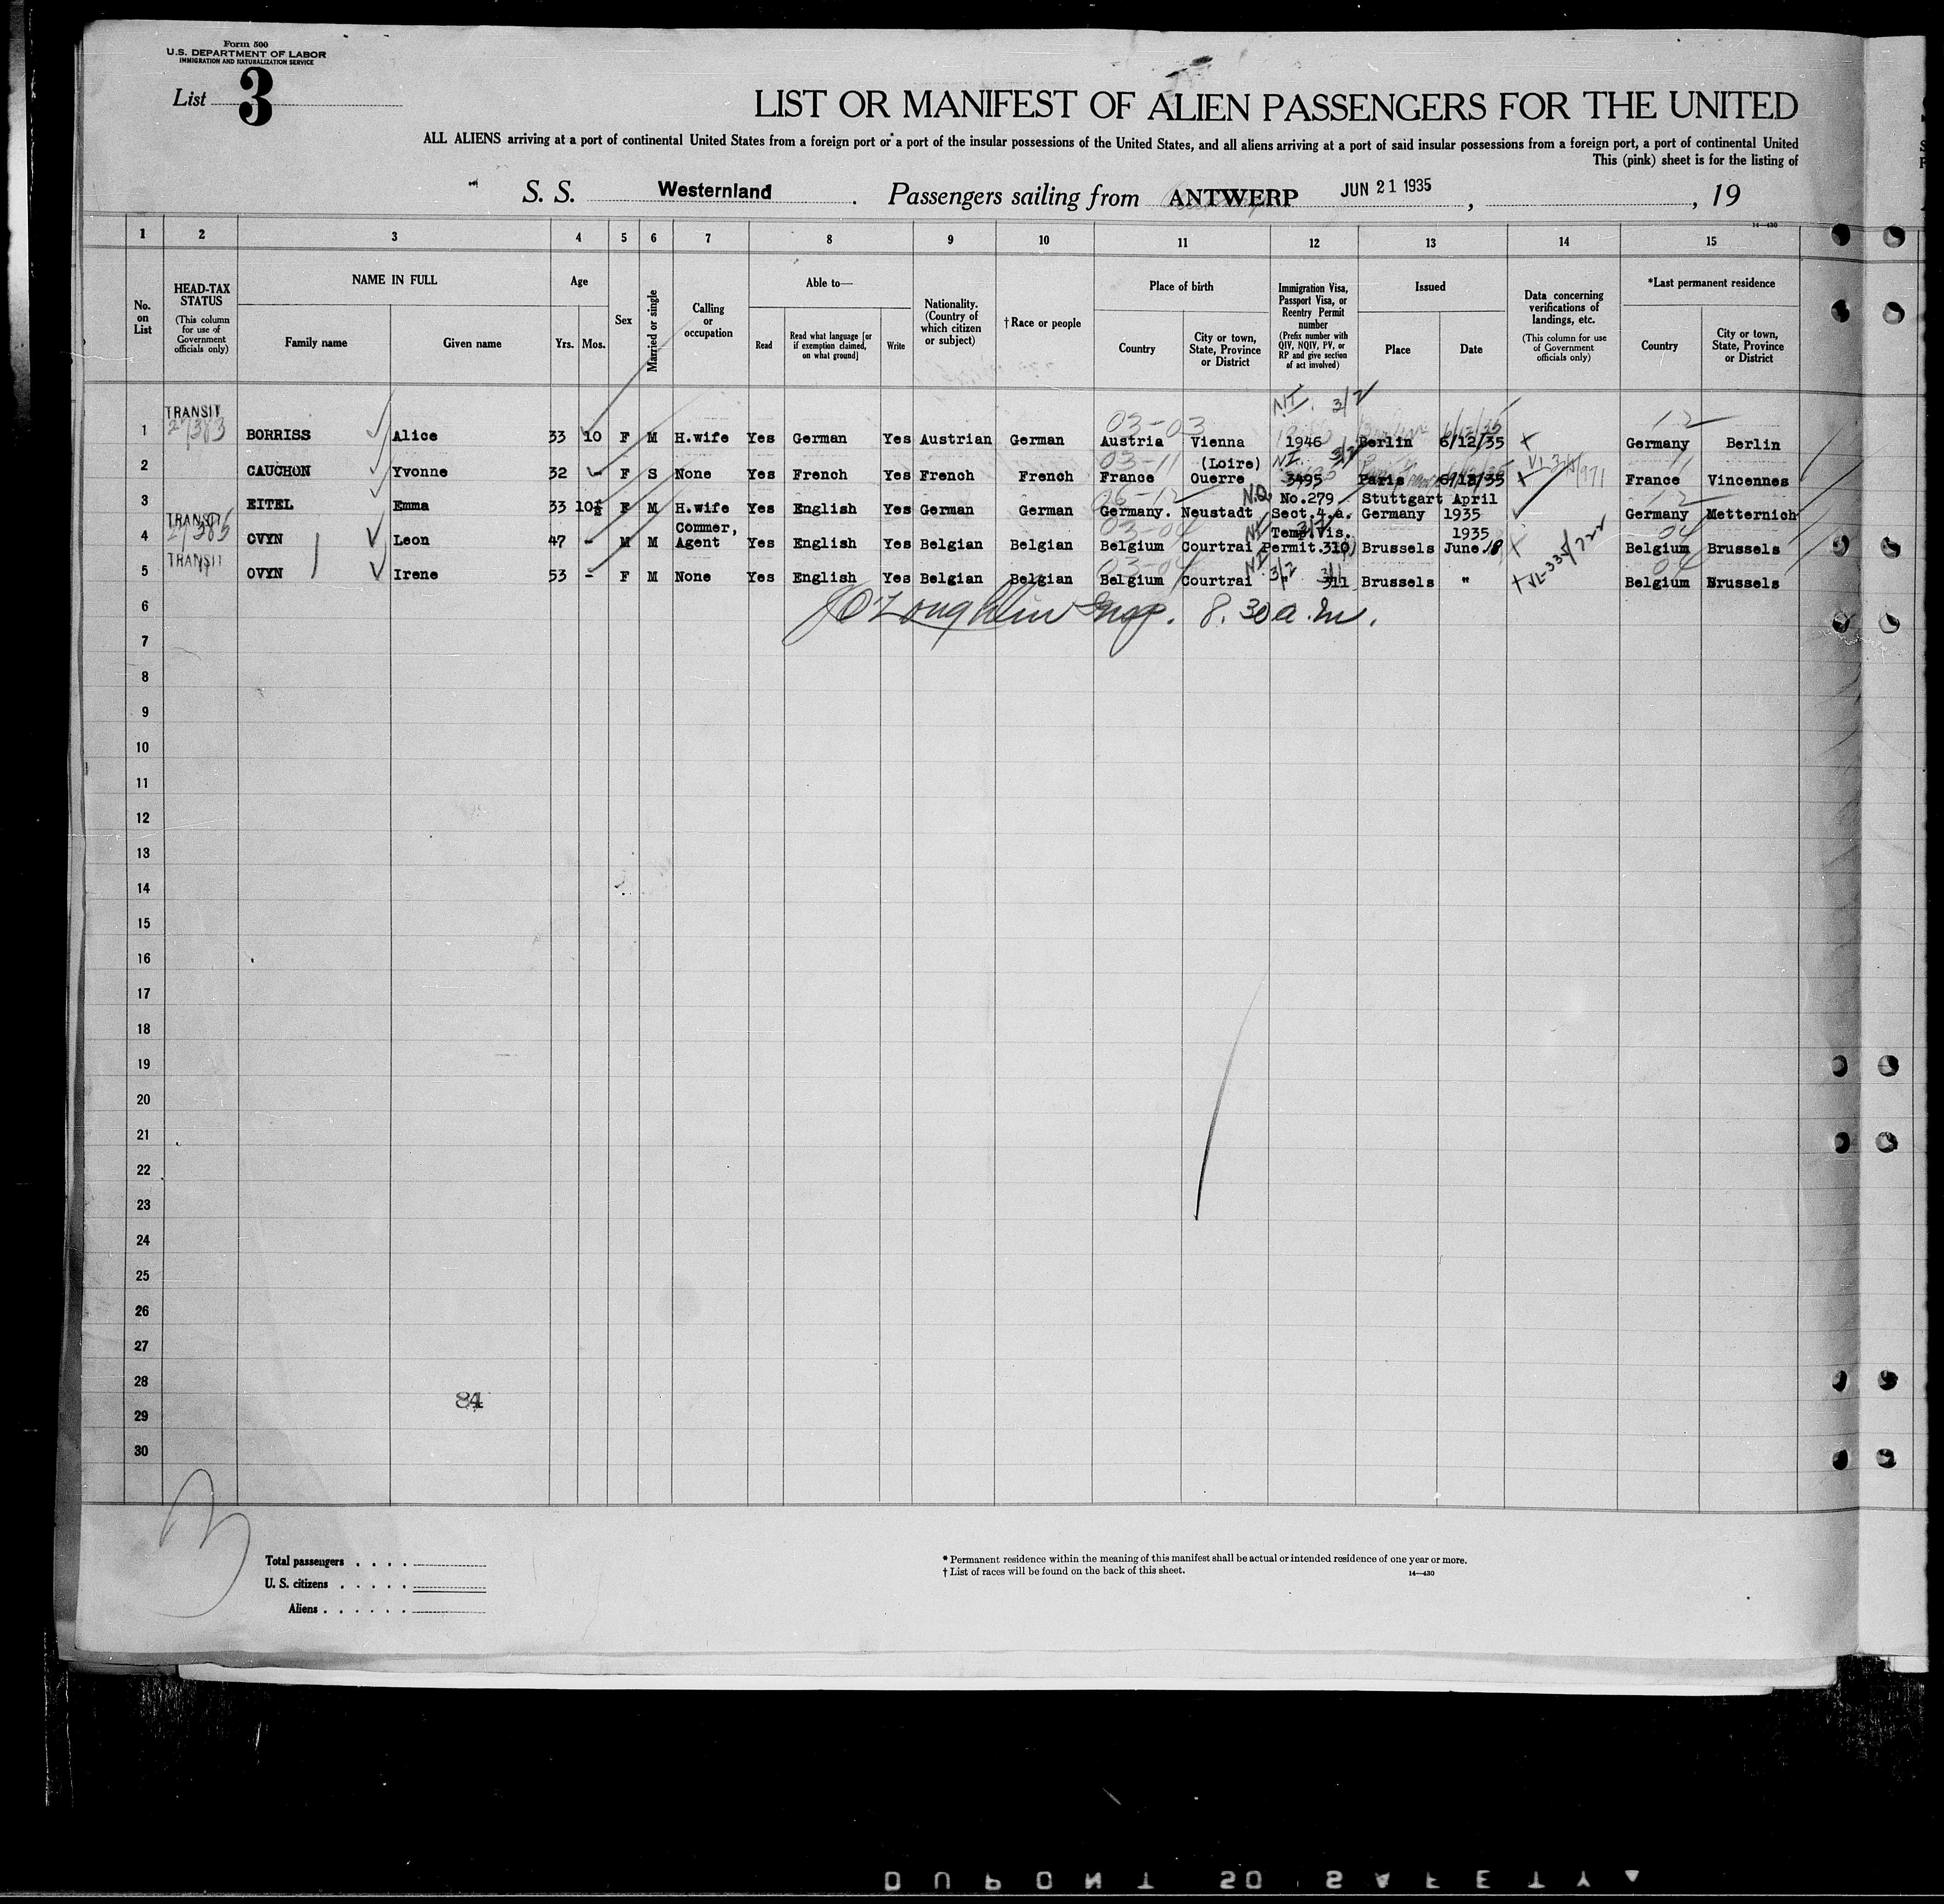 Form 500
U.S. DEPARTMENT OF LABOR
IMMIGRATION AND NATURALIZATION SERVICE
List 3
LIST OR MANIFEST OF ALIEN PASSENGERS FOR THE UNITED
ALL ALIENS arriving at a port of continental United States from a foreign port or a port of the insular possessions of the United States, and all aliens arriving at a port of said insular possessions from a foreign port, a port of continental United
This (pink) sheet is for the listing of
S. S. Westernland . Passengers sailing from ANTWERP JUN 21 1935 , , 19
14—430
1 2 3 4 5 6 7 8 9 10 11 12 13 14 15
No. on List
HEAD-TAX STATUS
(This column for use of Government officials only)
NAME IN FULL
Family name Given name
Age
Yrs. Mos.
Sex
Married or single
Calling or occupation
Able to—
Read
Read what language [or if exemption claimed, on what ground]
Write
Nationality. (Country of which citizen or subject)
† Race or people
Place of birth
Country
City or town, State, Province or District
Immigration Visa, Passport Visa, or Reentry Permit number
(Prefix number with QIV, NQIV, PV, or RP and give section of act involved)
Issued
Place Date
Data concerning verifications of landings, etc.
(This column for use of Government officials only)
*Last permanent residence
Country
City or town, State, Province or District
TRANSIT NI 3/2
27383 03-03 6/12/35 12
1 BORRISS Alice 33 10 F M H.wife Yes German Yes Austrian German Austria Vienna 1946 Berlin 6/12/35 Germany Berlin
03-11 (Loire) NI 3/2 11
2 CAUCHON Yvonne 32 - F S None Yes French Yes French French France Ouerre 3495 Paris 6/12/35 France Vincennes
N.Q. No.279 Stuttgart April 12
3 EITEL Emma 33 10½ F M H.wife Yes English Yes German German Germany. Neustadt Sect.4.a. Germany 1935 Germany Metternich
TRANSIT Commer, 03-04 Temp.Vis. 1935 04
27385
4 OVYN Leon 47 - M M Agent Yes English Yes Belgian Belgian Belgium Courtrai Permit.310 Brussels June.18 Belgium Brussels
TRANSIT 03-04 NI 3/2 04
5 OVYN Irene 53 - F M None Yes English Yes Belgian Belgian Belgium Courtrai " 311 Brussels " Belgium Brussels
6 O'Loughlin Insp. 8.30 a.m.
7
8
9
10
11
12
13
14
15
16
17
18
19
20
21
22
23
24
25
26
27
28
84
29
30
Total passengers . . . .
U. S. citizens . . . . .
Aliens . . . . . .
* Permanent residence within the meaning of this manifest shall be actual or intended residence of one year or more.
† List of races will be found on the back of this sheet. 14—430
DUPONT SAFETY